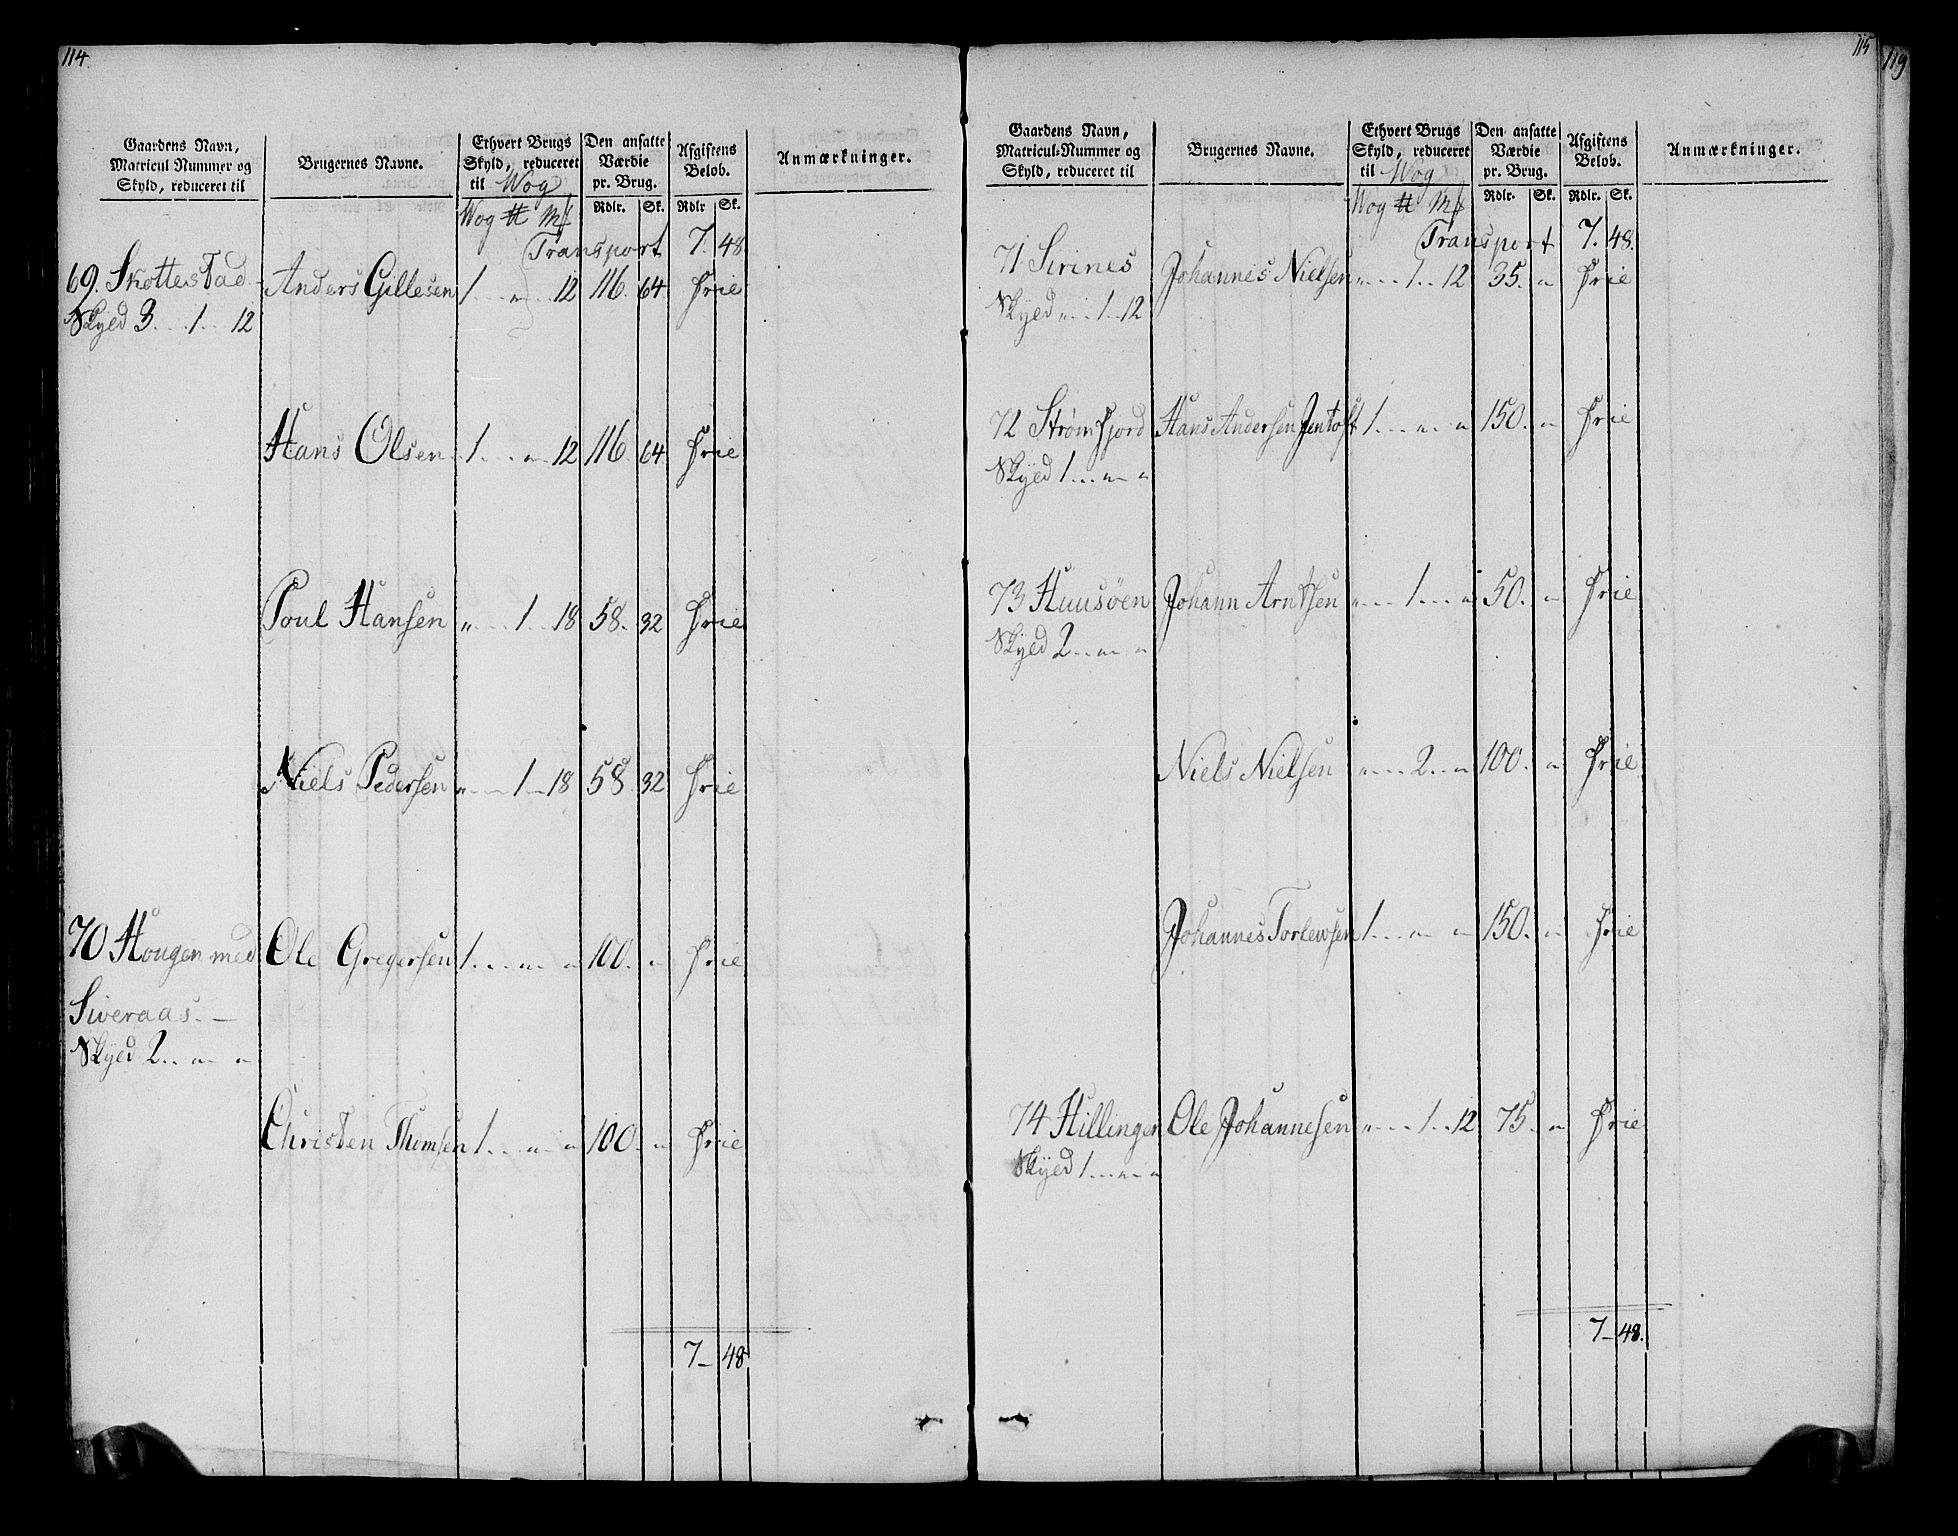 114
Gaardens Navn, Matricul Nummer og Skyld, reduceret til
Brugernes Navne.
Ethvert Brugs Skyld, reduceret til Wog
Den ansatte Værdie pr. Brug.
Afgiftens Beløb.
Anmærkninger.
Wog ℔ Mk Rdlr. Sk. Rdlr Sk.
Transport 7. 48.
69. Skottestad Anders Gillesen 1 . . „ . . 12 116. 64 frie
Skyld 3 . . 1 . . 12
Hans Olsen 1 . . „ . . 12 116. 64 frie
Poul Hansen „ . . 1 . . 18 58. 32 frie
Niels Pedersen „ . . 1 . . 18 58. 32 frie
70 Hougen med Ole Gregersen 1 . . „ . . „ 100. „ frie
Siveraas. —
Skyld 2 . . „ . . „
Christen Thomsen 1 . . „ . . „ 100. „ frie
7 – 48
115
119
Gaardens Navn, Matricul-Nummer og Skyld, reduceret til
Brugernes Navne.
Ethvert Brugs Skyld, reduceret til Wog
Den ansatte Værdie pr. Brug.
Afgiftens Beløb.
Anmærkninger.
Wog ℔ Mk Rdlr. Sk. Rdlr. Sk.
Transport 7. 48.
71 Sirines Johannes Nielsen „ . . 1 . . 12 35. „ frie
Skyld „ . . 1 . . 12
72 Strømfjord Hans Andersen Jentoft 1 . . „ . . „ 150. „ frie
Skyld 1 . . „ . . „
73 Huusøen Johann Arntsen „ . . 1 . . „ 50. „ frie
Skyld 2 . . „ . . „
Niels Nielsen „ . . 2 . . „ 100. „ frie
Johannes Torlewsen 1 . . „ . . „ 150. „ frie
74 Hillingen Ole Johannesen „ . . 1 . . 12 75. „ frie
Skyld 1 . . „ . . „
7 – 48.